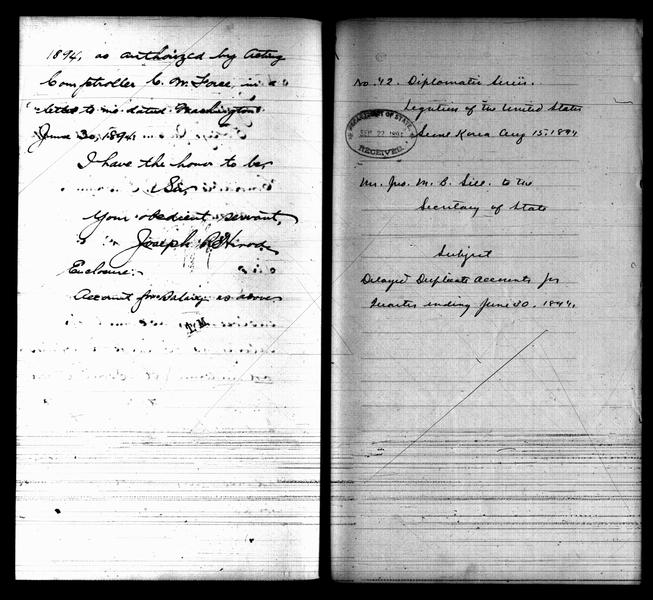 1894, as authorized by Acting
Comptroller C. M. Force, in a
letter to me dated Washington
June 30, 1894.
I have the honor to be,
Sir,
Your obedient servant,
Joseph R. Herod
Enclosure:-
Account for Salary as above
No. 42. Diplomatic Series.
Legation of the United States
Seoul Korea Aug 15, 1894
DEPARTMENT OF STATE
SEP 22 1894
RECEIVED.
Mr. Jno. M. B. Sill. to the
Secretary of State
Subject
Delayed Duplicate Accounts for
Quarter ending June 30, 1894.